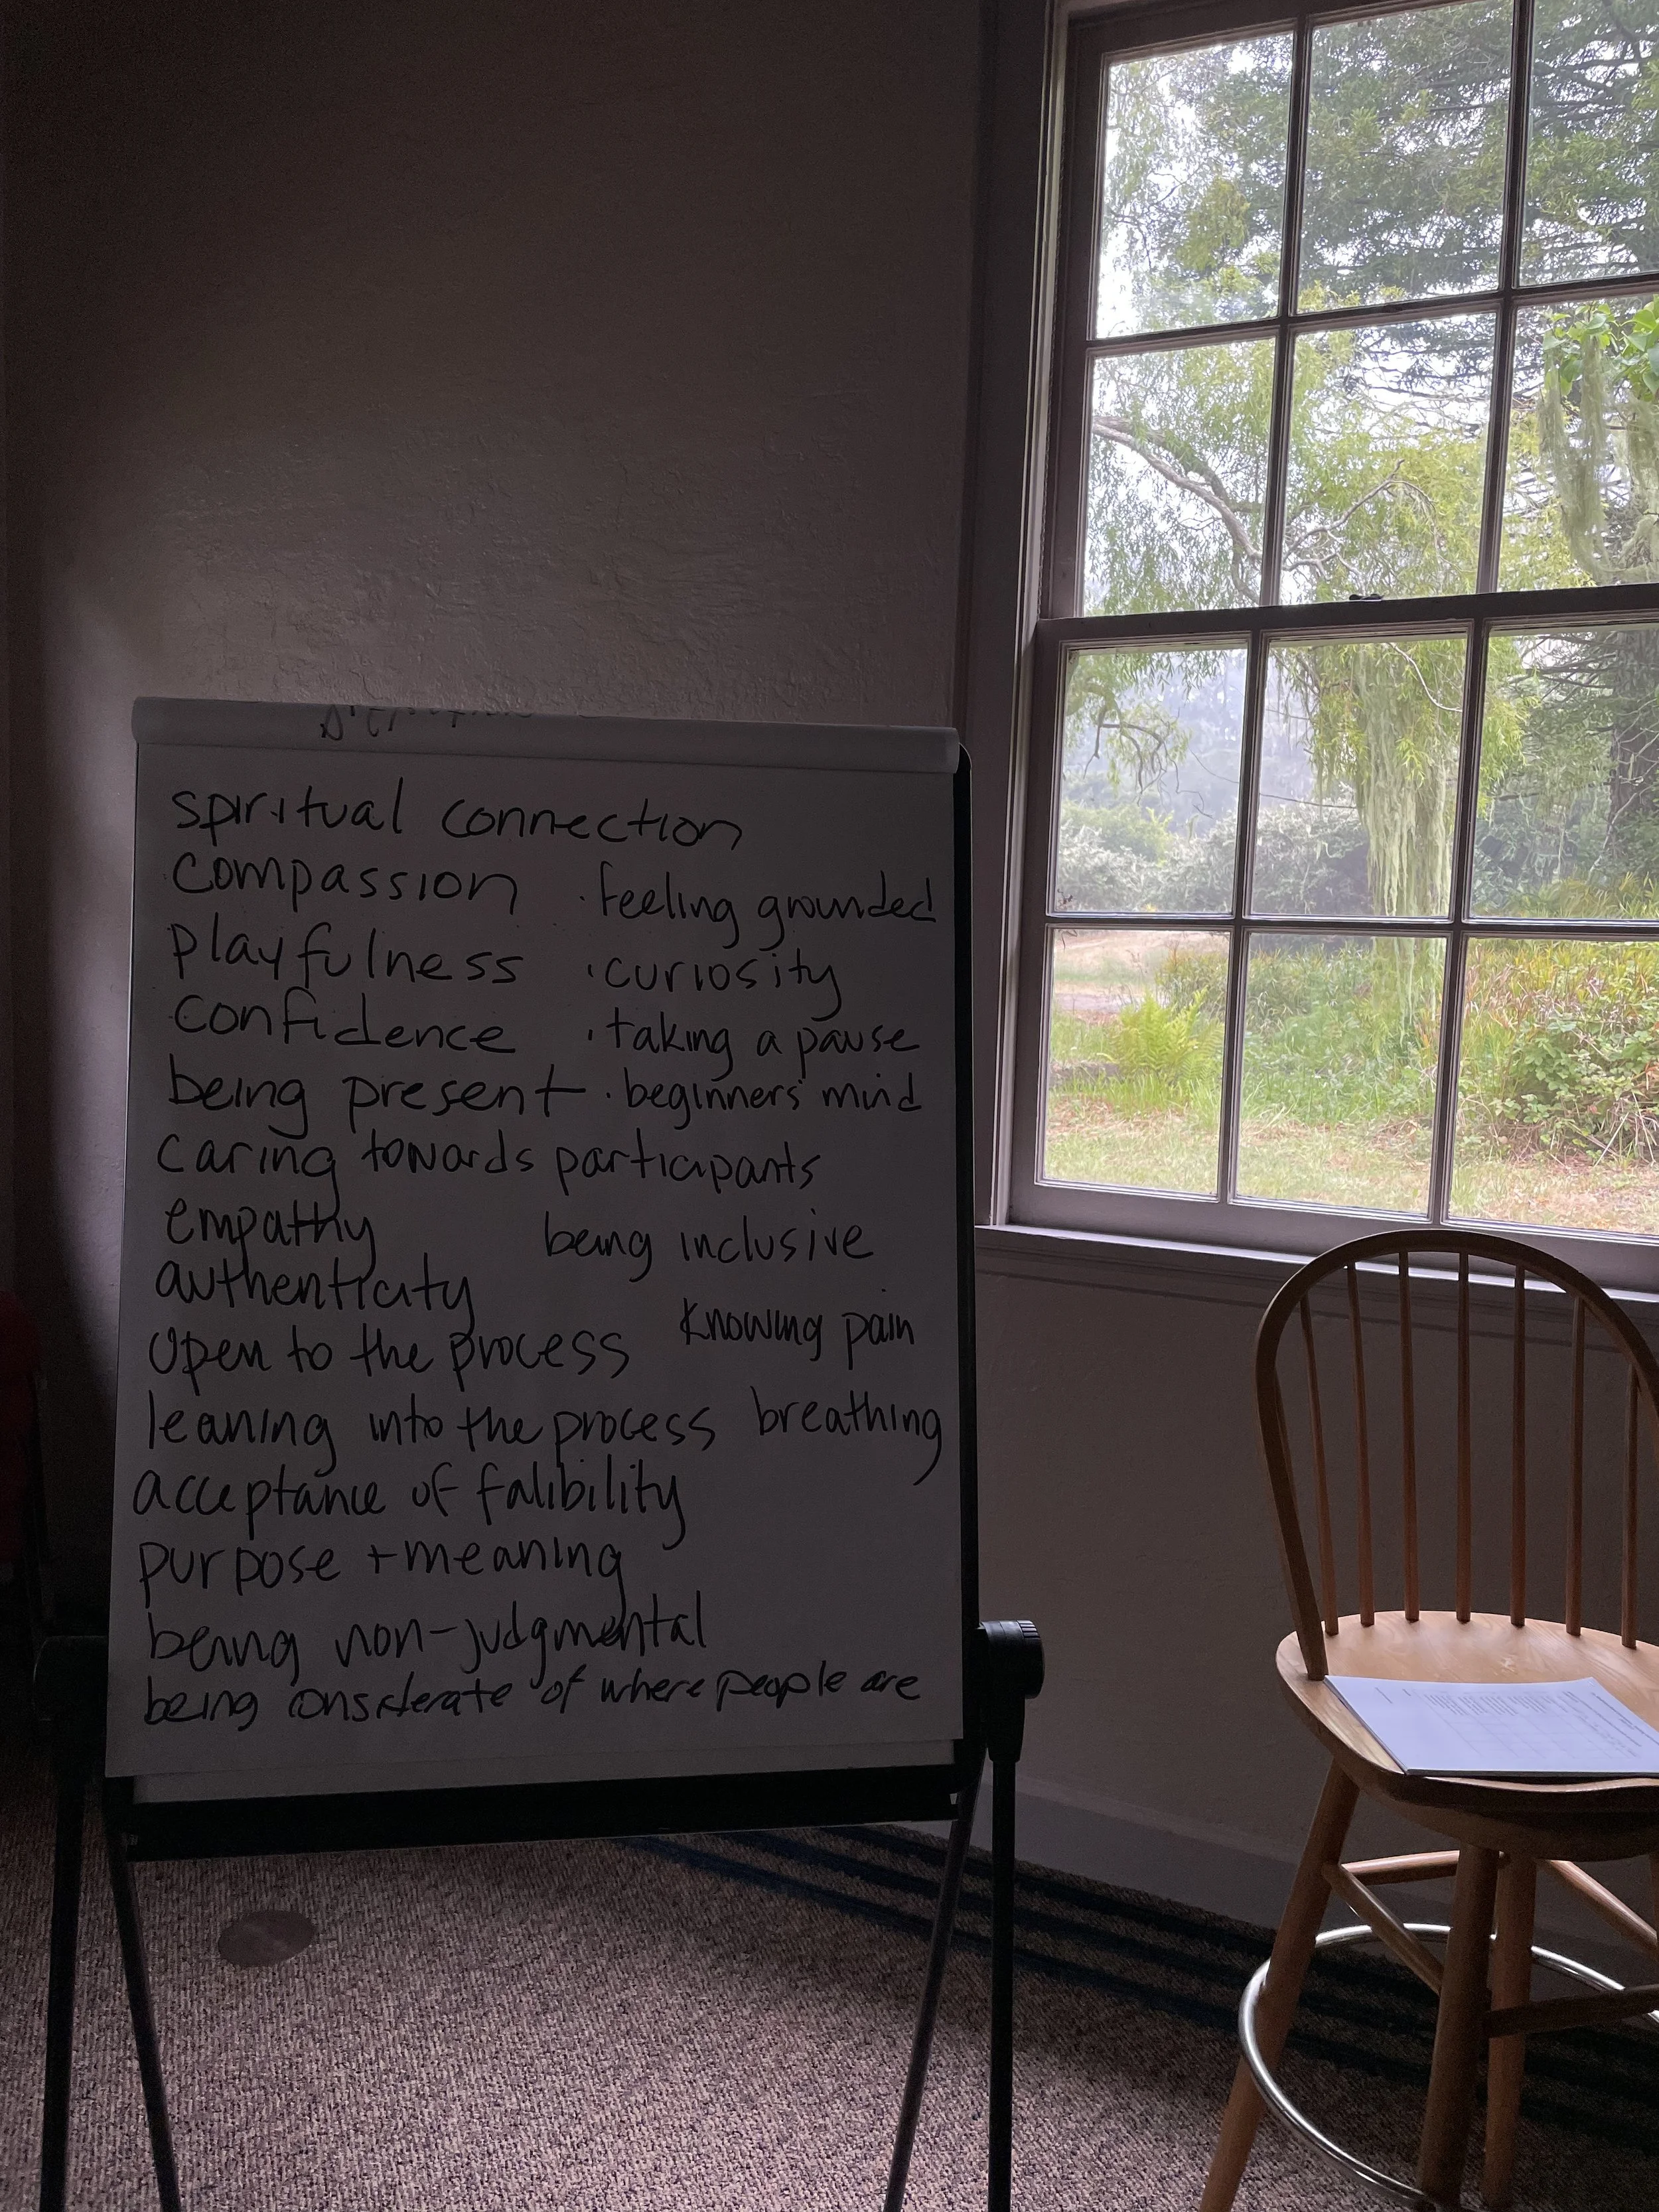 spiritual connection
compassion · feeling grounded
playfulness · curiosity
confidence · taking a pause
being present · beginners' mind
caring towards participants
empathy being inclusive
authenticity
open to the process knowing pain
leaning into the process breathing
acceptance of falibility
purpose + meaning
being non-judgmental
being considerate of where people are